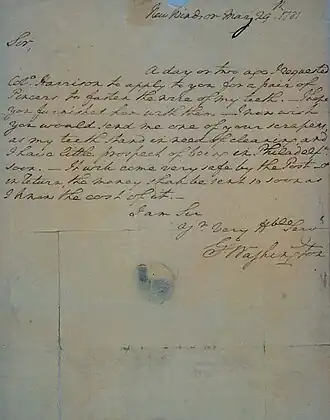 New Windsor May 29th 1781
Sir,
A day or two ago I requested
Colo. Harrison to apply to you for a pair of
Pincers to fasten the wire of my teeth. — I hope
you furnished him with them. — I now wish
you would send me one of your scrapers
as my teeth stand in need of cleaning, and
I have little prospect of being in Philadelpa.
soon. — It will come very safe by the Post — &
in return, the money shall be sent so soon as
I know the cost of it. —
I am Sir
Yr Very Hble Servt
Go Washington